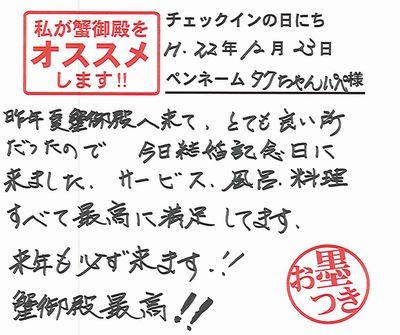 私が蟹御殿を
オススメ
します!!
チェックインの日にち
H.22年12月23日
ペンネーム タクちゃんパパ様
昨年夏蟹御殿へ来て、とても良い所
だったので 今日結婚記念日に
来ました。サービス、風呂、料理
すべて最高に満足してます。
来年も必ず来ます.!!
蟹御殿最高!!
お墨つき